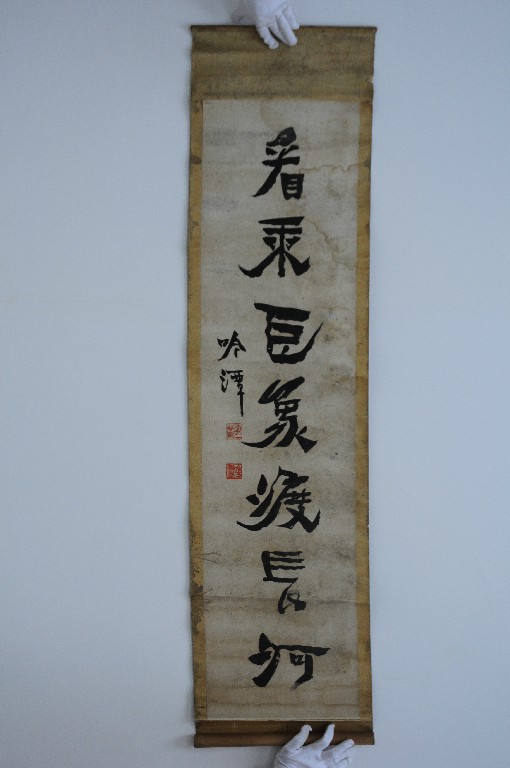 看乘巨象渡長河
吟潭